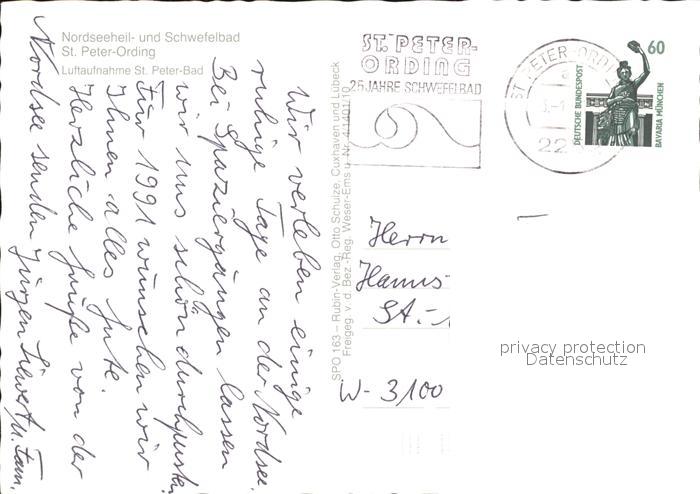 Nordseeheil- und Schwefelbad
St. Peter-Ording
Luftaufnahme St. Peter-Bad
Wir verleben einige
ruhige Tage an der Nordsee.
Bei Spaziergängen lassen
wir uns schön durchpusten.
Für 1991 wünschen wir
Ihnen alles Gute.
Herzliche Grüße von der
Nordsee senden Jürgen u. Fam.
SPO 163 – Rubin-Verlag, Otto Schulze, Cuxhaven und Lübeck
Freigeg. v. d. Bez.-Reg. Weser-Ems u. Nr.
ST. PETER-
ORDING
25 JAHRE SCHWEFELBAD
ST. PETER-ORDI
a
22
60
DEUTSCHE BUNDESPOST
BAVARIA MÜNCHEN
Herrn
Hanns-
St.-
W-3100
privacy protection
Datenschutz